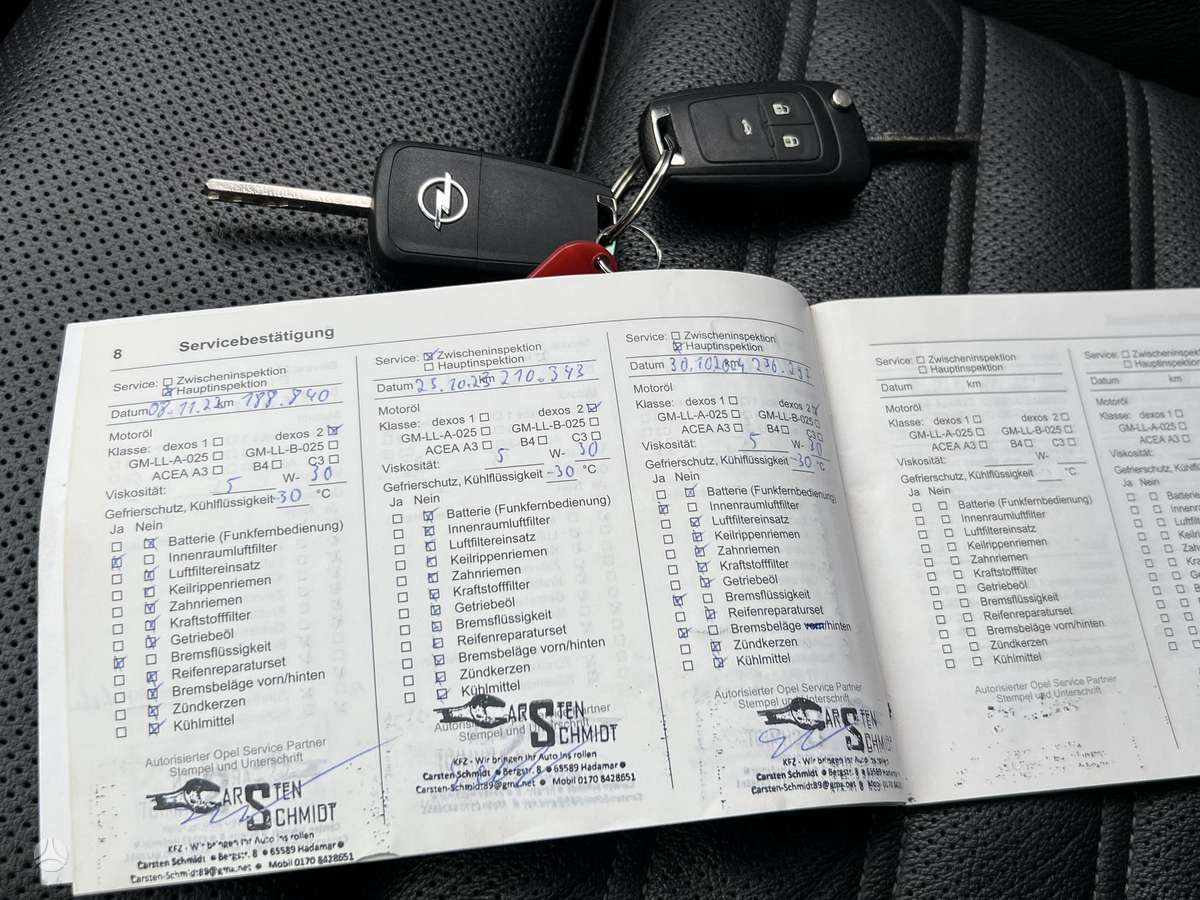 8 Servicebestätigung
Service: Zwischeninspektion
Hauptinspektion
Datum 08.11.22 km 188.840
Motoröl
Klasse: dexos 1 dexos 2
GM-LL-A-025 GM-LL-B-025
ACEA A3 B4 C3
Viskosität: 5 W- 30
Gefrierschutz, Kühlflüssigkeit -30 °C
Ja Nein
Batterie (Funkfernbedienung)
Innenraumluftfilter
Luftfiltereinsatz
Keilrippenriemen
Zahnriemen
Kraftstofffilter
Getriebeöl
Bremsflüssigkeit
Reifenreparaturset
Bremsbeläge vorn/hinten
Zündkerzen
Kühlmittel
Autorisierter Opel Service Partner
Stempel und Unterschrift
CARSTEN
SCHMIDT
KFZ - Wir bringen Ihr Auto ins rollen
Carsten Schmidt ● Bergstr. 8 ● 65589 Hadamar ●
Carsten-Schmidt89@gmx.net ● Mobil 0170 8428651
Service: Zwischeninspektion
Hauptinspektion
Datum 25.10.23 km 210.343
Motoröl
Klasse: dexos 1 dexos 2
GM-LL-A-025 GM-LL-B-025
ACEA A3 B4 C3
Viskosität: 5 W- 30
Gefrierschutz, Kühlflüssigkeit -30 °C
Ja Nein
Batterie (Funkfernbedienung)
Innenraumluftfilter
Luftfiltereinsatz
Keilrippenriemen
Zahnriemen
Kraftstofffilter
Getriebeöl
Bremsflüssigkeit
Reifenreparaturset
Bremsbeläge vorn/hinten
Zündkerzen
Kühlmittel
Partner
Stempel und
CARSTEN
SCHMIDT
KFZ - Wir bringen Ihr Auto ins rollen
Carsten Schmidt ● Bergstr. 8 ● 65589 Hadamar ●
Carsten-Schmidt89@gmx.net ● Mobil 0170 8428651
Service: Zwischeninspektion
Hauptinspektion
Datum km
Motoröl
Klasse: dexos 1 dexos 2
GM-LL-A-025 GM-LL-B-025
ACEA A3 B4 C3
Viskosität: 5 W- 30
Gefrierschutz, Kühlflüssigkeit -30 °C
Ja Nein
Batterie (Funkfernbedienung)
Innenraumluftfilter
Luftfiltereinsatz
Keilrippenriemen
Zahnriemen
Kraftstofffilter
Getriebeöl
Bremsflüssigkeit
Reifenreparaturset
Bremsbeläge vorn/hinten
Zündkerzen
Kühlmittel
Autorisierter Opel Service Partner
Stempel und Unterschrift
CARSTEN
SCHMIDT
KFZ - Wir bringen Ihr Auto ins rollen
Carsten Schmidt ● Bergstr. 8 ● 65589
Carsten-Schmidt89@gmx.net ● Mobil
Service: Zwischeninspektion
Hauptinspektion
Datum km
Motoröl
Klasse: dexos 1 dexos 2
GM-LL-A-025 GM-LL-B-025
ACEA A3 B4 C3
Viskosität: W-
Gefrierschutz, Kühlflüssigkeit °C
Ja Nein
Batterie (Funkfernbedienung)
Innenraumluftfilter
Luftfiltereinsatz
Keilrippenriemen
Zahnriemen
Kraftstofffilter
Getriebeöl
Bremsflüssigkeit
Reifenreparaturset
Bremsbeläge vorn/hinten
Zündkerzen
Kühlmittel
Autorisierter Opel Service Partner
Stempel und Unterschrift
Service: Zwischeninspektion
Hauptinspektion
Datum km
Motoröl
Klasse: dexos 1
GM-LL-A-025
ACEA A3
Viskosität:
Gefrierschutz,
Ja Nein